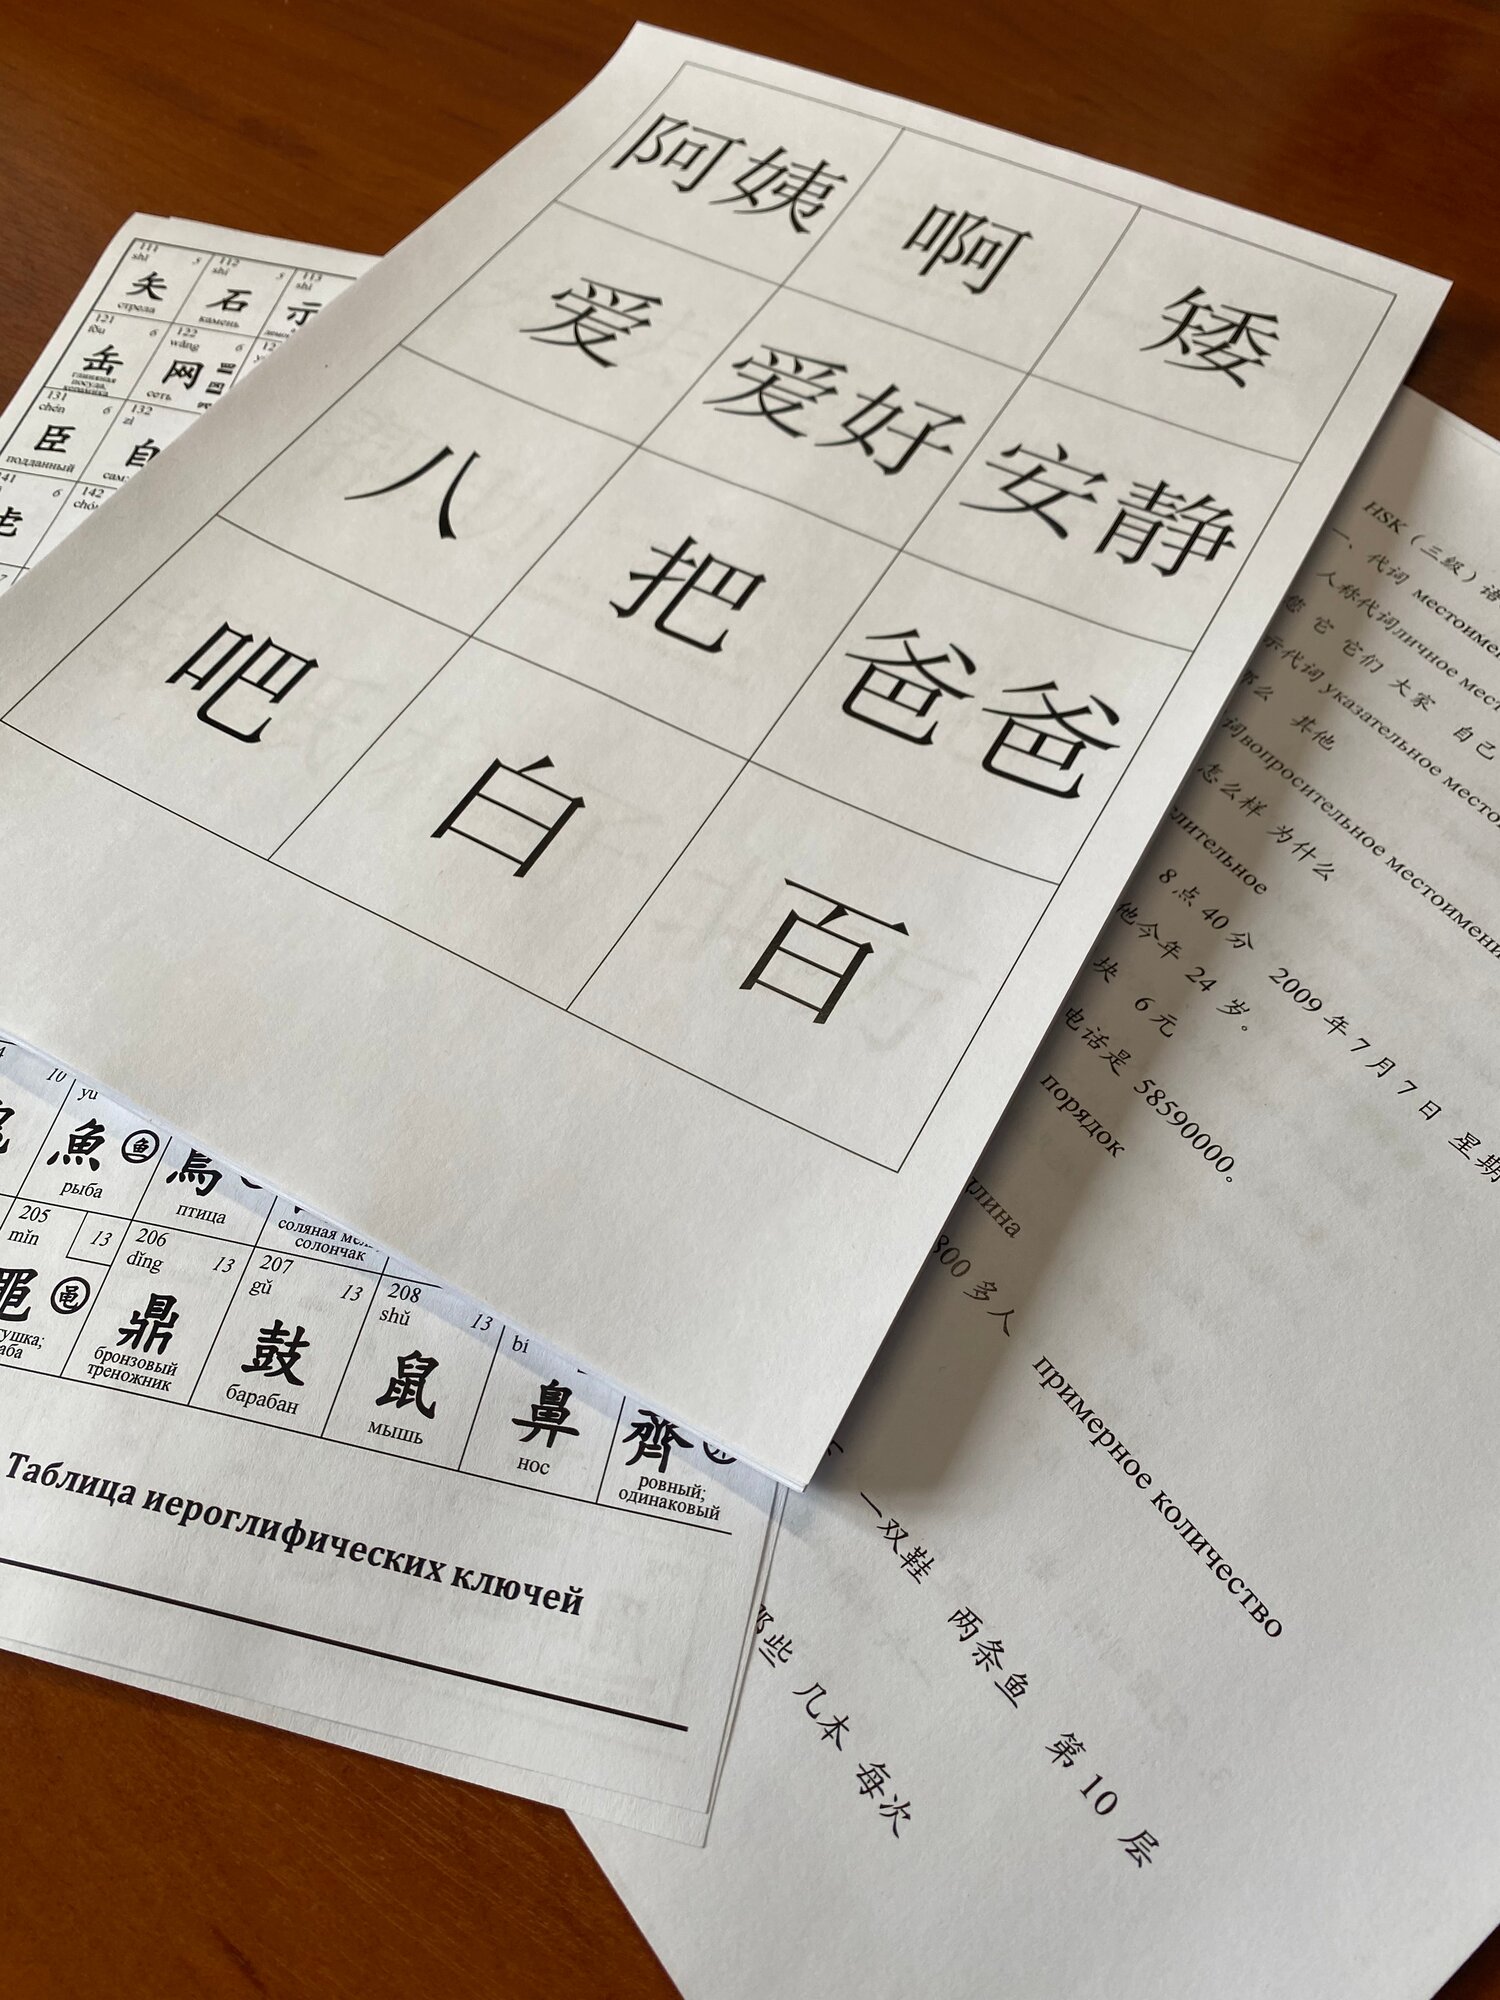 阿姨 啊 矮
爱 爱好 安静
八 把 爸爸
吧 白 百
111 5 112 5 113
shǐ shí shì
矢 石 示
стрела камень
121 6 122 6
fǒu wǎng
缶 网
глиняная посуда, керамика сеть
131 6 132
chén zì
臣 自
подданный
6 142
10 yú
魚 鱼 鳥
рыба птица соляная
солончак
205 13 206 13 207 13 208 13
mǐn dǐng gǔ shǔ bí
黽 黾 鼎 鼓 鼠 鼻 齊
бронзовый треножник барабан мышь нос ровный; одинаковый
Таблица иероглифических ключей
HSK（三级）语
一、代词
人称代词личное
它 它们 大家 自己
示代词 указательное
其他
词вопросительное
怎么样 为什么
8 点 40 分 2009 年 7 月 7 日 星期
他今年 24 岁。
块 6 元
电话是 58590000。
порядок
800 多人
примерное количество
一双鞋 两条鱼 第 10 层
那些 几本 每次